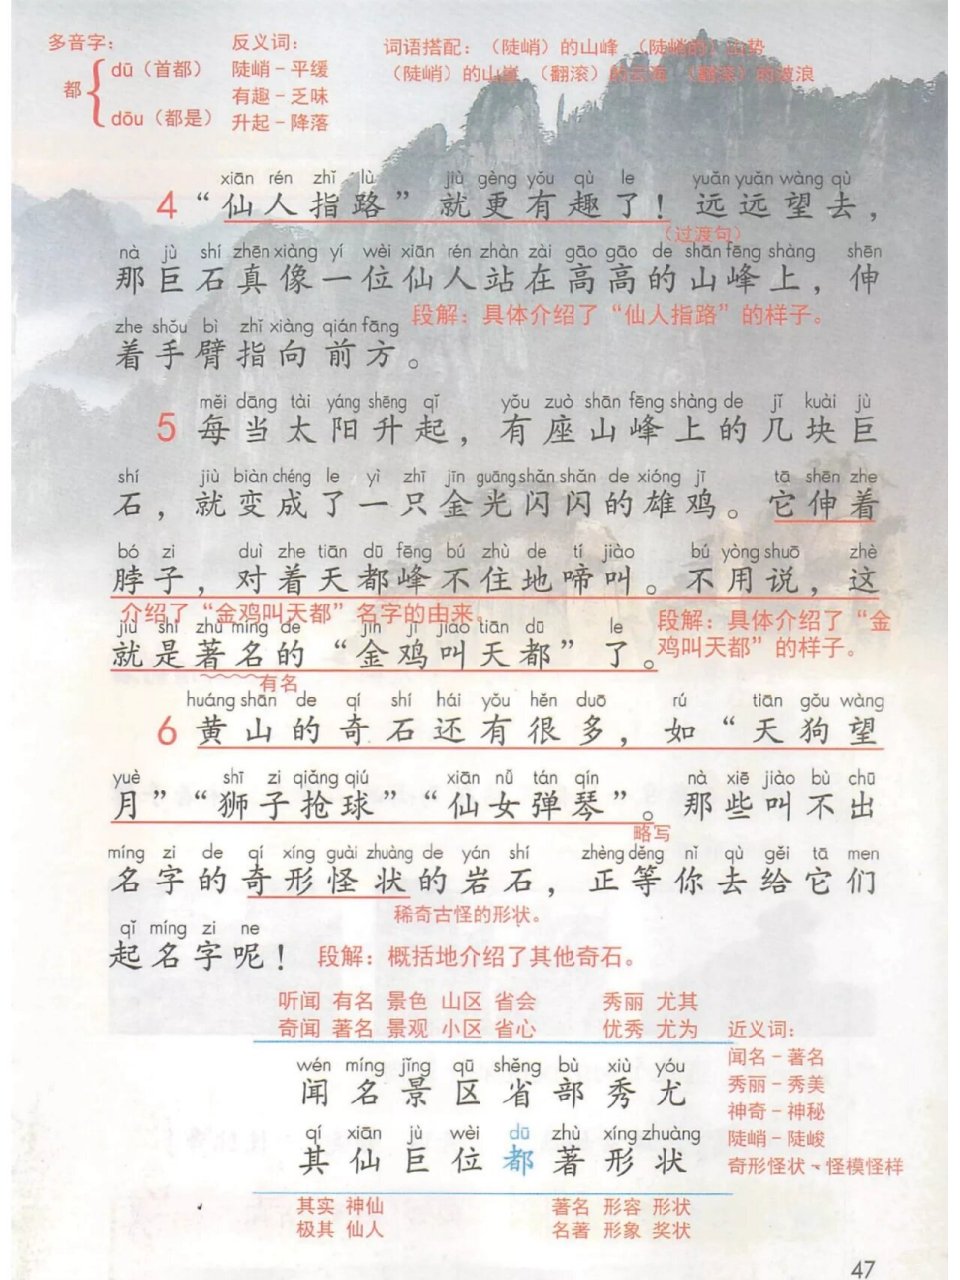 多音字： 反义词： 词语搭配：（陡峭）的山峰 （陡峭的）山势
都 dū（首都） 陡峭－平缓 （陡峭）的山崖 （翻滚）的云海 （翻滚）的波浪
有趣－乏味
dōu（都是） 升起－降落
xiān rén zhǐ lù jiù gèng yǒu qù le yuǎn yuǎn wàng qù
4 “仙人指路”就更有趣了！远远望去，
（过渡句）
nà jù shí zhēn xiàng yí wèi xiān rén zhàn zài gāo gāo de shān fēng shàng shēn
那巨石真像一位仙人站在高高的山峰上，伸
zhe shǒu bì zhǐ xiàng qián fāng
段解：具体介绍了“仙人指路”的样子。
着手臂指向前方。
měi dāng tài yáng shēng qǐ yǒu zuò shān fēng shàng de jǐ kuài jù
5 每当太阳升起，有座山峰上的几块巨
shí jiù biàn chéng le yì zhī jīn guāng shǎn shǎn de xióng jī tā shēn zhe
石，就变成了一只金光闪闪的雄鸡。它伸着
bó zi duì zhe tiān dū fēng bú zhù de tí jiào bú yòng shuō zhè
脖子，对着天都峰不住地啼叫。不用说，这
介绍了“金鸡叫天都”名字的由来。 段解：具体介绍了“金
jiù shì zhù míng de jīn jī jiào tiān dū le
鸡叫天都”的样子。
就是著名的“金鸡叫天都”了。
有名
huáng shān de qí shí hái yǒu hěn duō rú tiān gǒu wàng
6 黄山的奇石还有很多，如“天狗望
yuè shī zi qiǎng qiú xiān nǚ tán qín nà xiē jiào bù chū
月”“狮子抢球”“仙女弹琴”。那些叫不出
略写
míng zi de qí xíng guài zhuàng de yán shí zhèng děng nǐ qù gěi tā men
名字的奇形怪状的岩石，正等你去给它们
稀奇古怪的形状。
qǐ míng zi ne
起名字呢！ 段解：概括地介绍了其他奇石。
听闻 有名 景色 山区 省会 秀丽 尤其
奇闻 著名 景观 小区 省心 优秀 尤为 近义词：
闻名－著名
wén míng jǐng qū shěng bù xiù yóu
秀丽－秀美
闻名景区省部秀尤
神奇－神秘
qí xiān jù wèi dū zhù xíng zhuàng
陡峭－陡峻
其仙巨位都著形状
奇形怪状－怪模怪样
其实 神仙 著名 形容 形状
极其 仙人 名著 形象 奖状
47